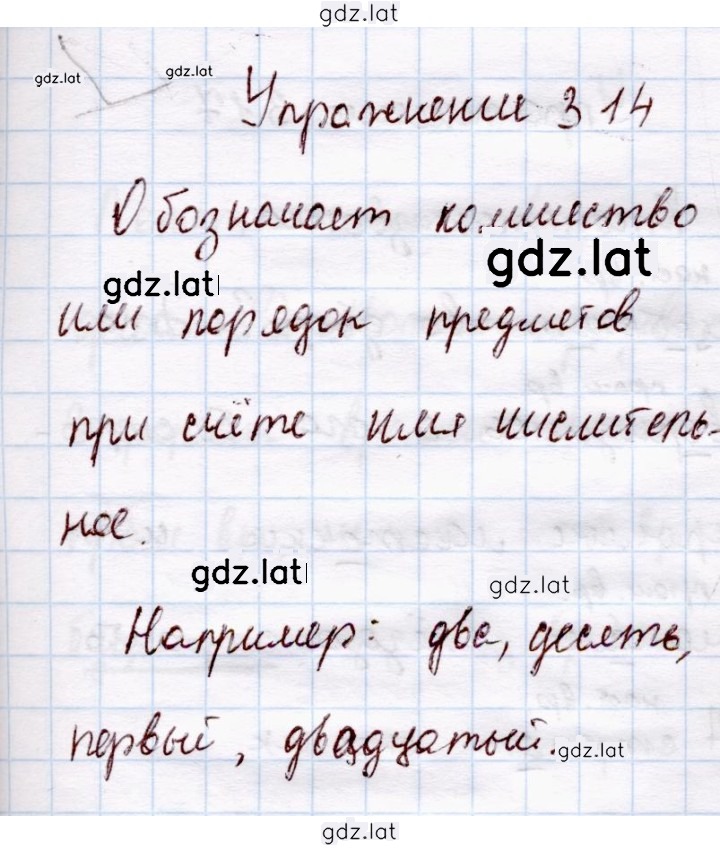 gdz.lat
gdz.lat
gdz.lat
Упражнение 314
Обозначает количество
gdz.lat
gdz.lat
или порядок предметов
при счёте имя числитель-
ное.
gdz.lat
gdz.lat
Например: два, десять,
первый, двадцатый.
gdz.lat
gdz.lat